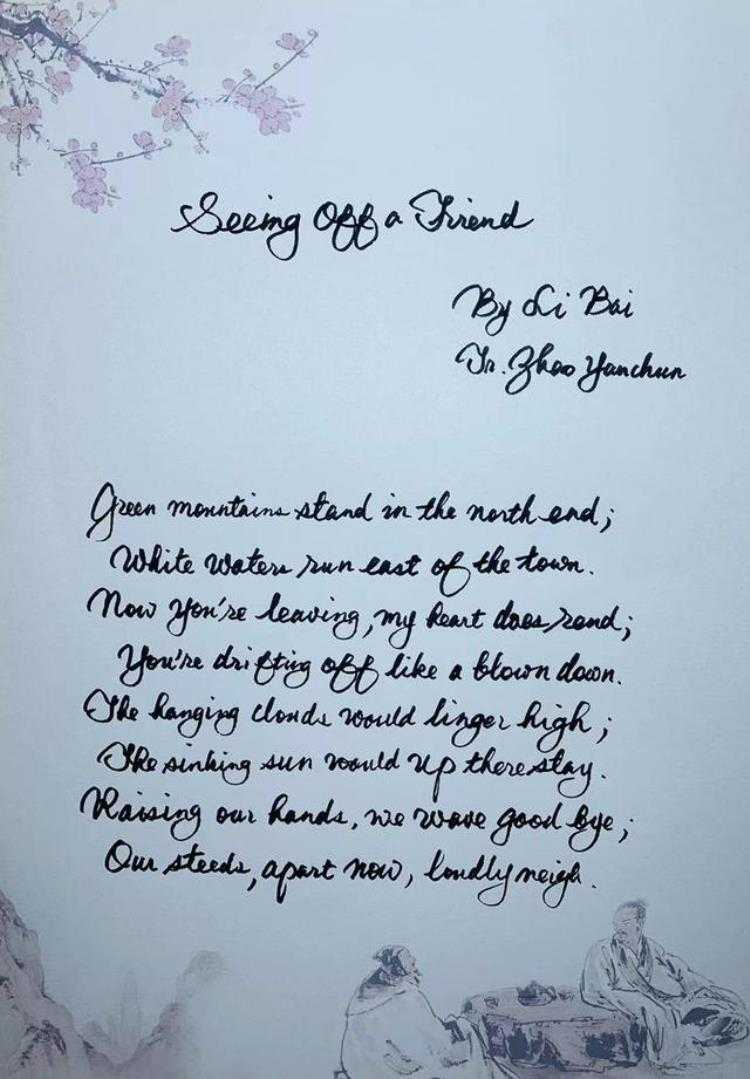 Seeing Off a Friend
By Li Bai
Tr. Zhao Yanchun
Green mountains stand in the north end;
White waters run east of the town.
Now you're leaving, my heart does rend;
You're drifting off like a blown down.
The hanging clouds would linger high;
The sinking sun would up there stay.
Raising our hands, we wave good bye;
Our steeds, apart now, loudly neigh.